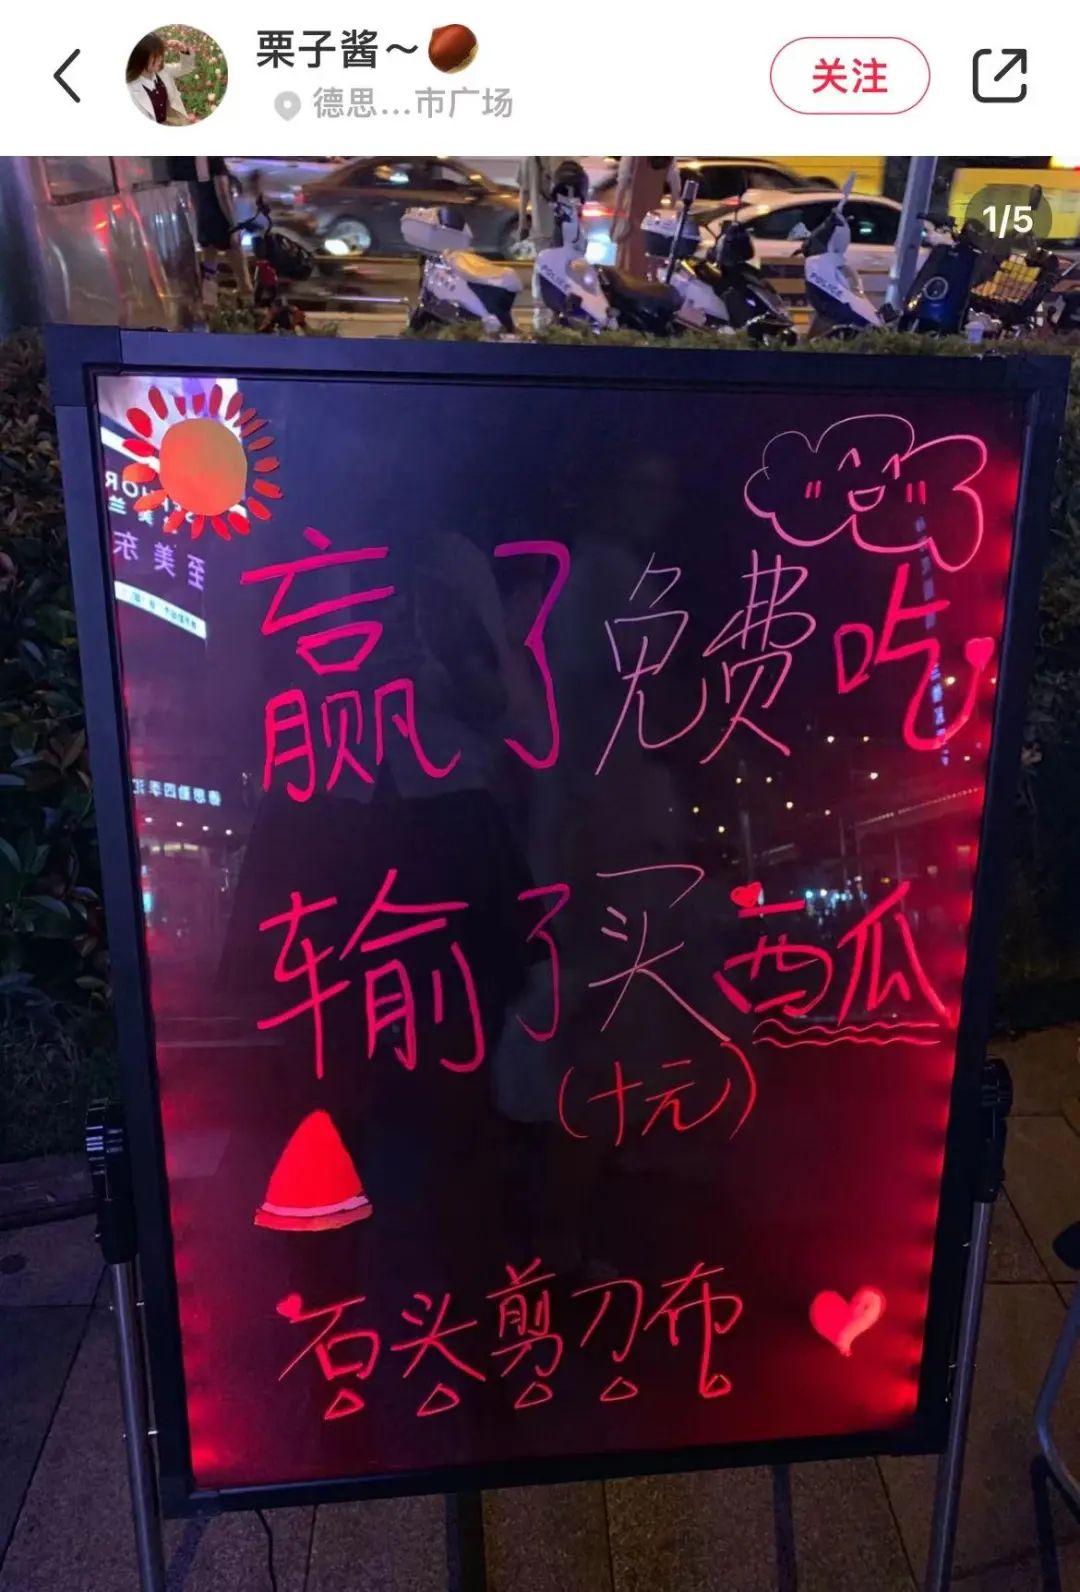 栗子酱～
德思...市广场
关注
1/5
POLICE
POLICE
赢了免费吃
输了买西瓜
(十元)
石头剪刀布